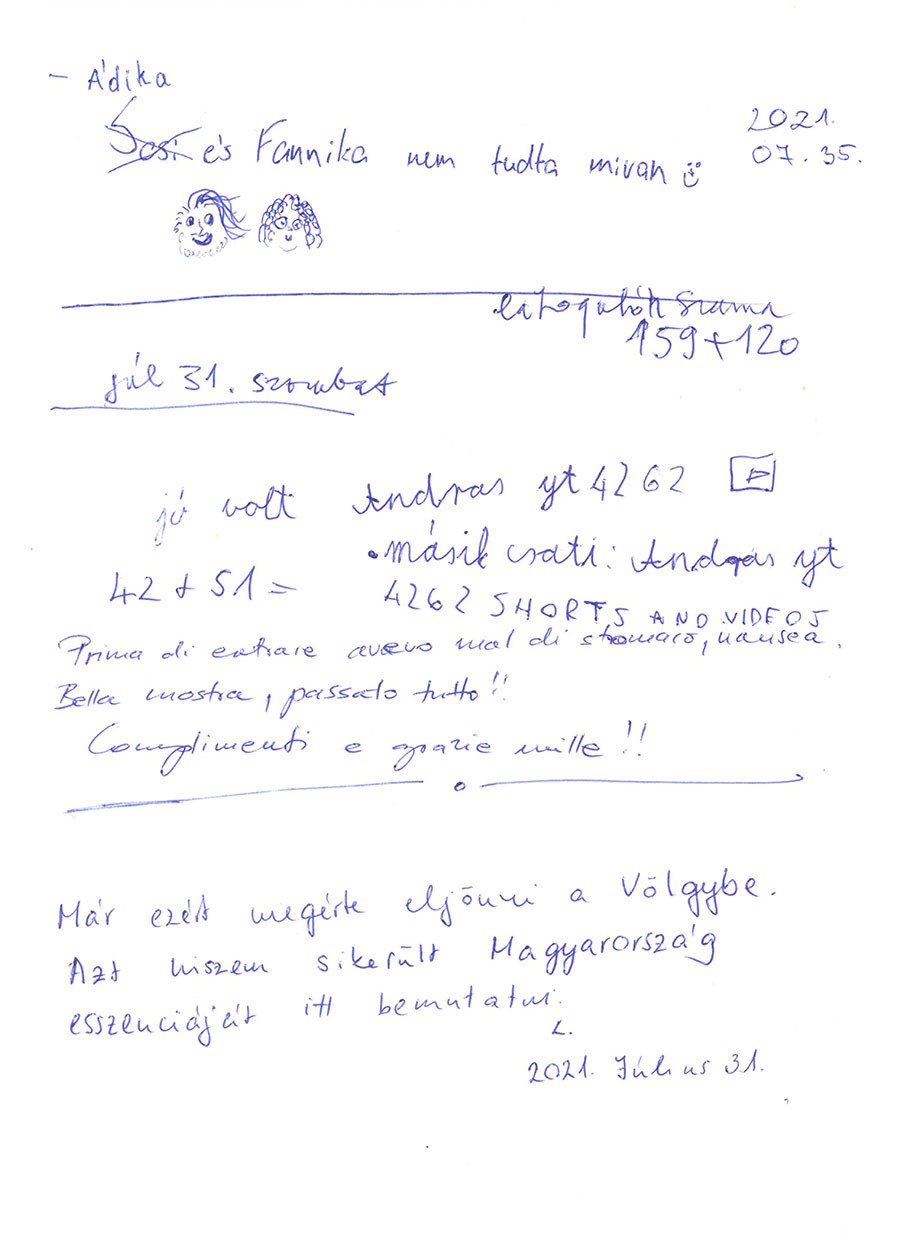 - Ádika
és Fannika nem tudta mivan
2021.
07.35.
látogatók száma
159+120
júl 31. szombat
jó volt Andras yt 4262
• másik csati: Andras yt
42 + 51 =
4262 SHORTS AND VIDEOS
Prima di entrare avevo mal di stomaco, nausea.
Bella mostra, passato tutto!!
Complimenti e grazie mille!!
Már ezért megérte eljönni a Völgybe.
Azt hiszem sikerült Magyarország
esszenciáját itt bemutatni.
L.
2021. Július 31.